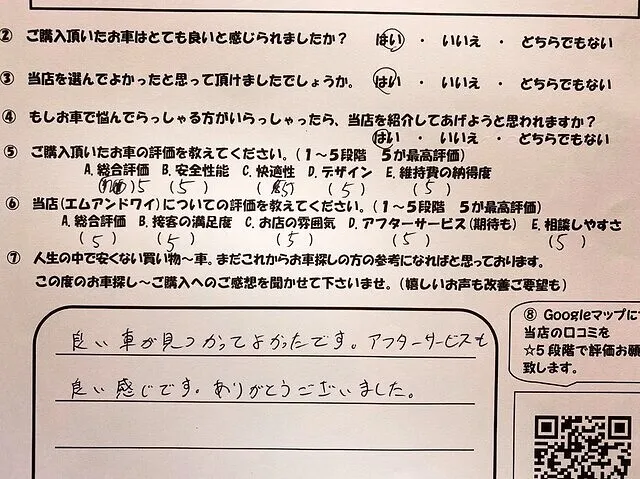 ② ご購入頂いたお車はとても良いと感じられましたか？　はい ・ いいえ ・ どちらでもない
③ 当店を選んでよかったと思って頂けましたでしょうか。　はい ・ いいえ ・ どちらでもない
④ もしお車で悩んでらっしゃる方がいらっしゃったら、当店を紹介してあげようと思われますか？
はい ・ いいえ ・ どちらでもない
⑤ ご購入頂いたお車の評価を教えてください。（１～５段階　５が最高評価）
A. 総合評価　B. 安全性能　C. 快適性　D. デザイン　E. 維持費の納得度
5　(5)　(5)　(5)　(5)
⑥ 当店（エムアンドワイ）についての評価を教えてください。（１～５段階　５が最高評価）
A. 総合評価　B. 接客の満足度　C. お店の雰囲気　D. アフターサービス（期待も）　E. 相談しやすさ
(5)　(5)　(5)　(5)　(5)
⑦ 人生の中で安くない買い物～車。まだこれからお車探しの方の参考になればと思っております。
この度のお車探し～ご購入へのご感想を聞かせて下さいませ。（嬉しいお声も改善ご要望も）
良い車が見つかってよかったです。アフターサービスも
良い感じです。ありがとうございました。
⑧ Googleマップに
当店の口コミを
☆５段階で評価お願
致します。